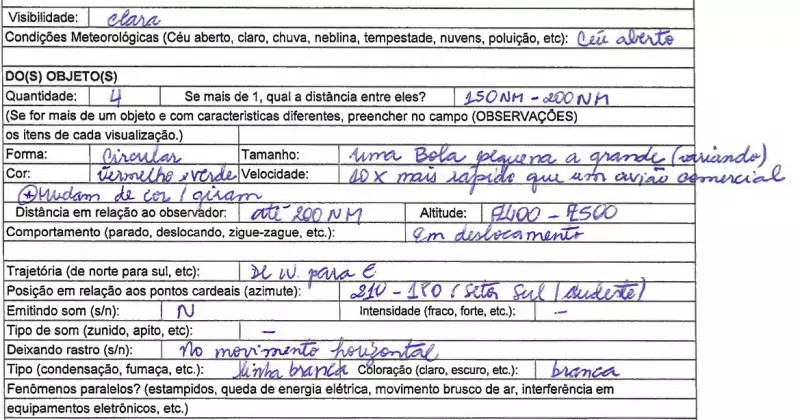 Visibilidade: clara
Condições Meteorológicas (Céu aberto, claro, chuva, neblina, tempestade, nuvens, poluição, etc): Céu aberto
DO(S) OBJETO(S)
Quantidade: 4 Se mais de 1, qual a distância entre eles? 150NM - 200NM
(Se for mais de um objeto e com caracteristicas diferentes, preencher no campo (OBSERVAÇÕES)
os itens de cada visualização.)
Forma: Circular Tamanho: uma Bola pequena a grande (variando)
Cor: Vermelho e verde Velocidade: 10 x mais rápido que um avião comercial
+ Mudam de cor / giram
Distância em relação ao observador: até 200 NM Altitude: FL400 - FL500
Comportamento (parado, deslocando, zigue-zague, etc.): Em deslocamento
Trajetória (de norte para sul, etc): De W. para E
Posição em relação aos pontos cardeais (azimute): 210 - 180 (Setor Sul / Sudeste)
Emitindo som (s/n): N Intensidade (fraco, forte, etc.): -
Tipo de som (zunido, apito, etc): -
Deixando rastro (s/n): No movimento horizontal
Tipo (condensação, fumaça, etc.): linha branca Coloração (claro, escuro, etc.): branca
Fenômenos paralelos? (estampidos, queda de energia elétrica, movimento brusco de ar, interferência em
equipamentos eletrônicos, etc.)